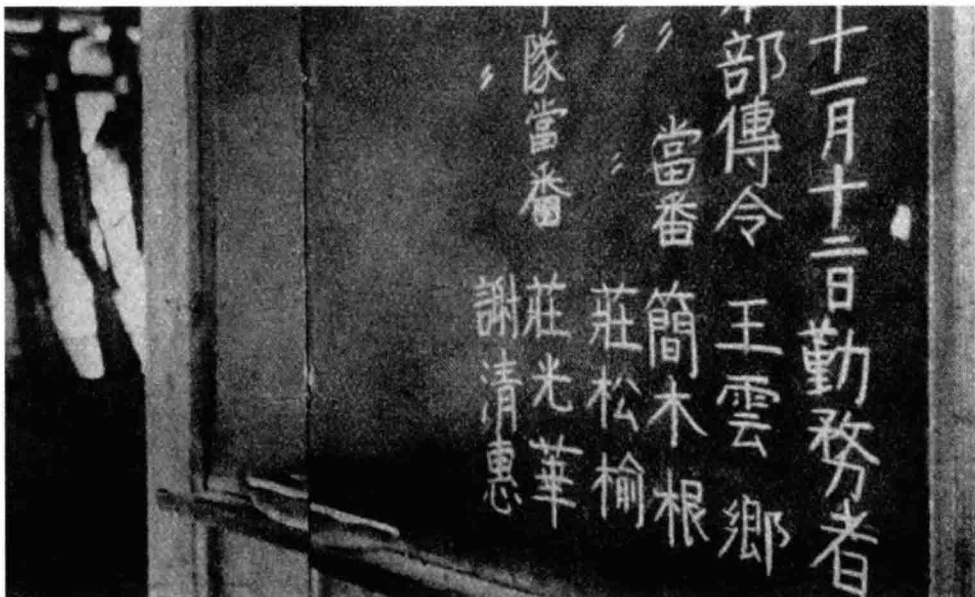 十一月十二日勤務者
部傳令 王雲鄉
〃 當番 簡木根
〃 〃 莊松榆
隊當番 莊光華
〃 謝清惠